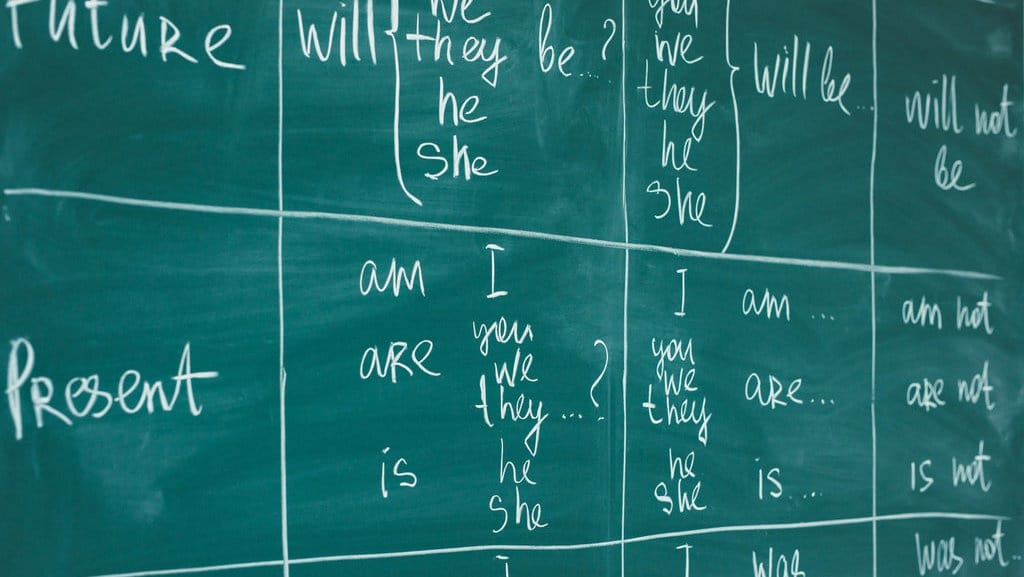 Future will we be...? you will be... will not be
they we
he they
she he
she
Present am I I am ... am not
are you you are... are not
we we
they ...? they
is he he is .... is not
she she
I I was was not..